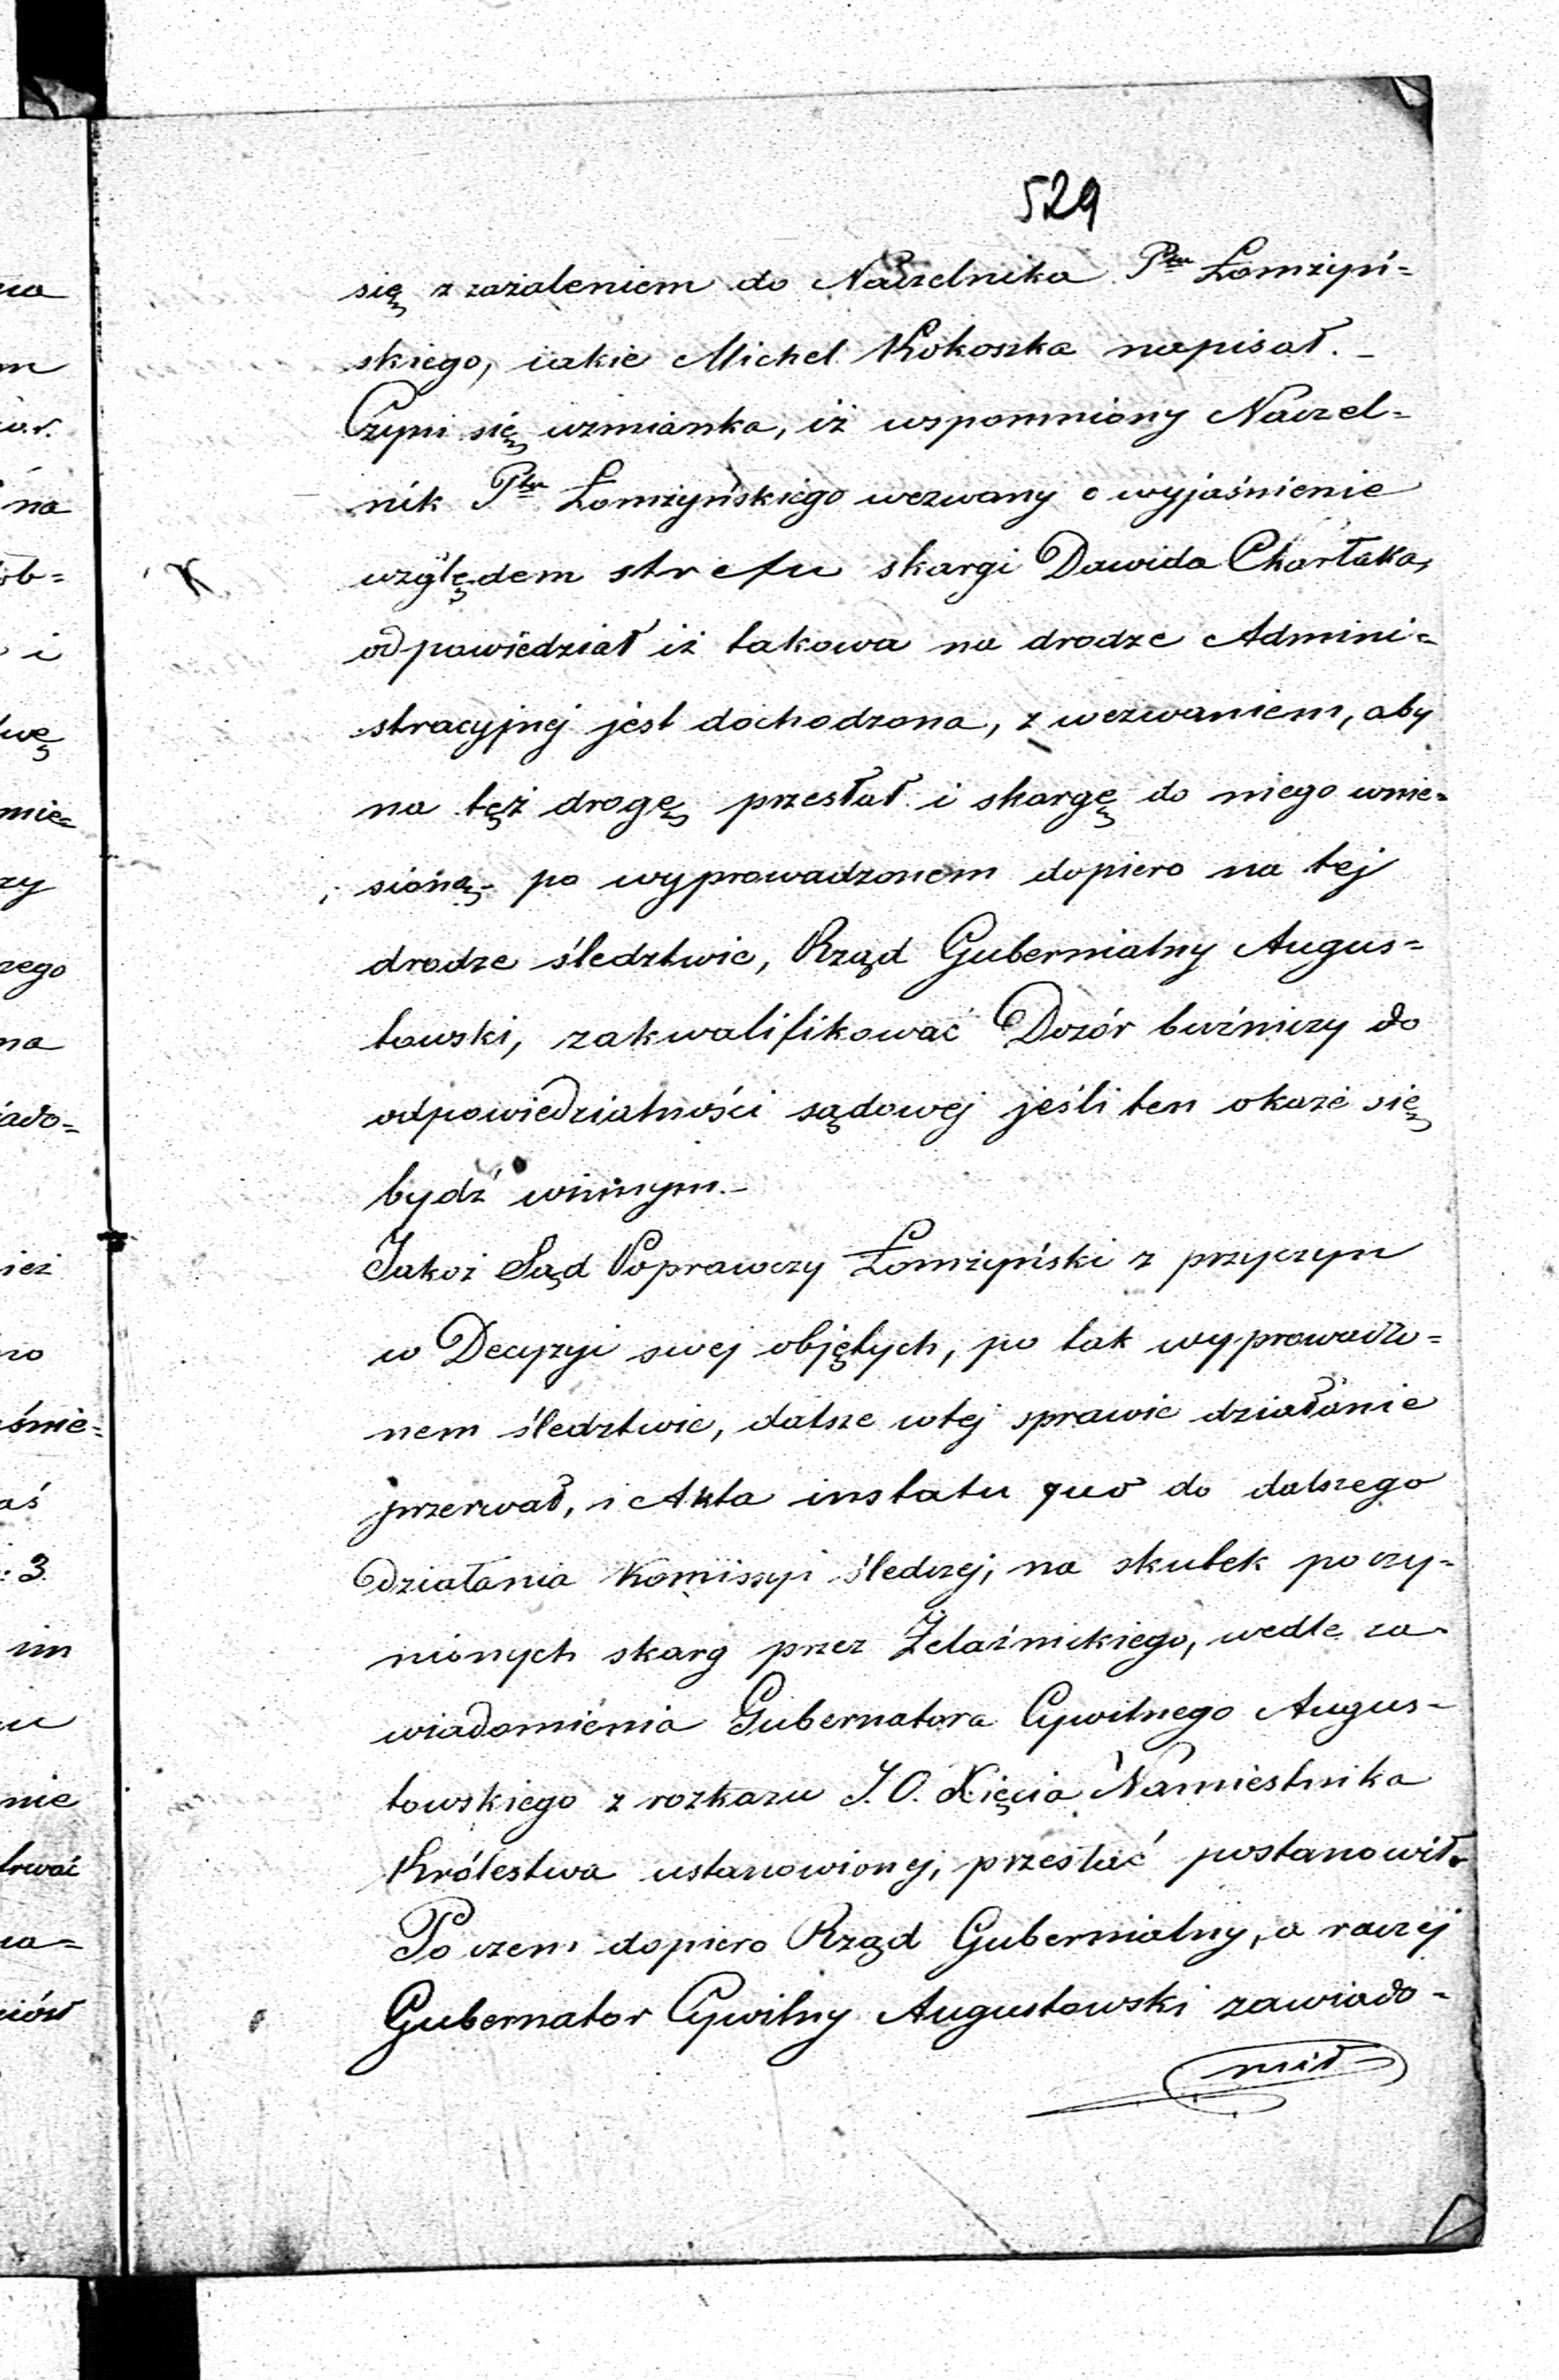 529
się z zażaleniem do Naczelnika Ptu Łomżyń=
skiego, iakie Michel Kokoszka napisał. –
Czyni się wzmianka, iż wspomniony Naczel=
nik Ptu Łomżyńskiego wezwany o wyjaśnienie
względem skargi Dawida Chartaka,
odpowiedział iż takowa na drodze Admini=
stracyjnej jest dochodzona, z wezwaniem, aby
na też drogę przesłał i skargę do niego wnie=
sioną – po wyprowadzonem dopiero na tej
drodze śledztwie, Rząd Gubernialny Augus=
towski, zakwalifikować Dozór bużniczy do
odpowiedzialności sądowej jeśli ten okaże się
bydź winnym. –
Jakoż Sąd Poprawczy Łomżyński z przyczyn
w Decyzyi swej objętych, po tak wyprowadzo=
nem śledztwie, dalsze wtej sprawie działanie
przerwał, i Akta instatu quo do dalszego
działania Komissyi śledczej, na skutek poczy=
nionych skarg przez Żelaźnickiego, wedle za-
wiadomienia Gubernatora Cywilnego Augus-
towskiego z rozkazu J.O. Xięcia Namiestnika
Królestwa ustanowionej, przesłać postanowił.
Poczem dopiero Rząd Gubernialny, a raczej
Gubernator Cywilny Augustowski zawiado-
mił